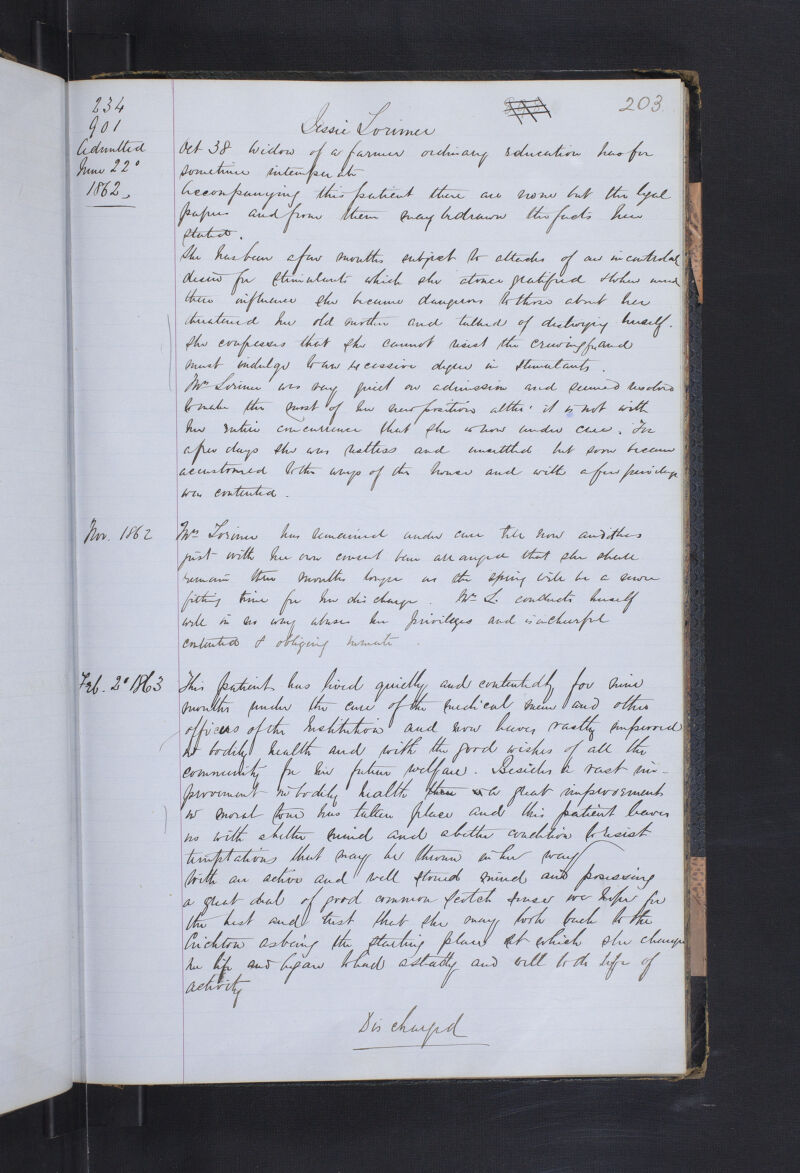 203
234
901
Admitted
June 22°
1862
Jessie Lorimer
Aet 38 Widow of a farmer ordinary education has for
sometime intemperate
Accompanying this patient there are none but the legal
papers and from them may be drawn the facts here
stated.
She has been a few months subject to attacks of an incontrolable
desire for stimulants which she at once gratified & when under
their influence she became dangerous to those about her
threatened her old mother and talked of destroying herself.
She confesses that she cannot resist the craving, and
must indulge to an excessive degree in stimulants.
Mrs Lorimer was very quiet on admission and seemed resolved
to make the most of her new position altho' it is not with
her entire concurrence that she is now under care. For
a few days she was restless and unsettled but soon became
accustomed to the ways of the house and with a few privileges
was contented.
Nov. 1862
Mrs Lorimer has remained under care till now and it has
just with her own consent been arranged that she shall
remain three months longer as the spring will be a more
fitting time for her discharge. Mrs L. conducts herself
well in no way abuses her privileges and is a cheerful
contented & obliging inmate.
Feb. 2° 1863
This patient has lived quietly and contentedly for nine
months under the care of the medical men and other
officers of the Institution and now leaves vastly improved
in bodily health and with the good wishes of all the
community for her future welfare. Besides a vast im-
provement in bodily health a great improvement
in moral tone has taken place and this patient leaves
us with a better mind and a better condition to resist
temptations that may be thrown in her way
With an active and well stored mind and possessing
a great deal of good common Scotch sense we hope for
the best and trust that she may look back to the
Crichton as being the starting place at which she changed
her life and began to lead a steady and well to do life of
activity
Discharged